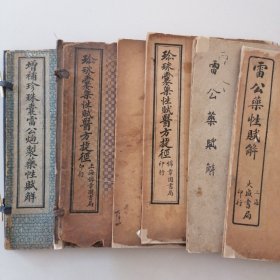 增補珍珠囊雷公炮製藥性賦解
珍珠囊藥性賦醫方捷徑
上海錦章圖書局
印行
珍珠囊藥性賦醫方捷徑
錦章圖書局
印行
雷公藥賦解
雷公藥性賦解
上海
大成書局
印行